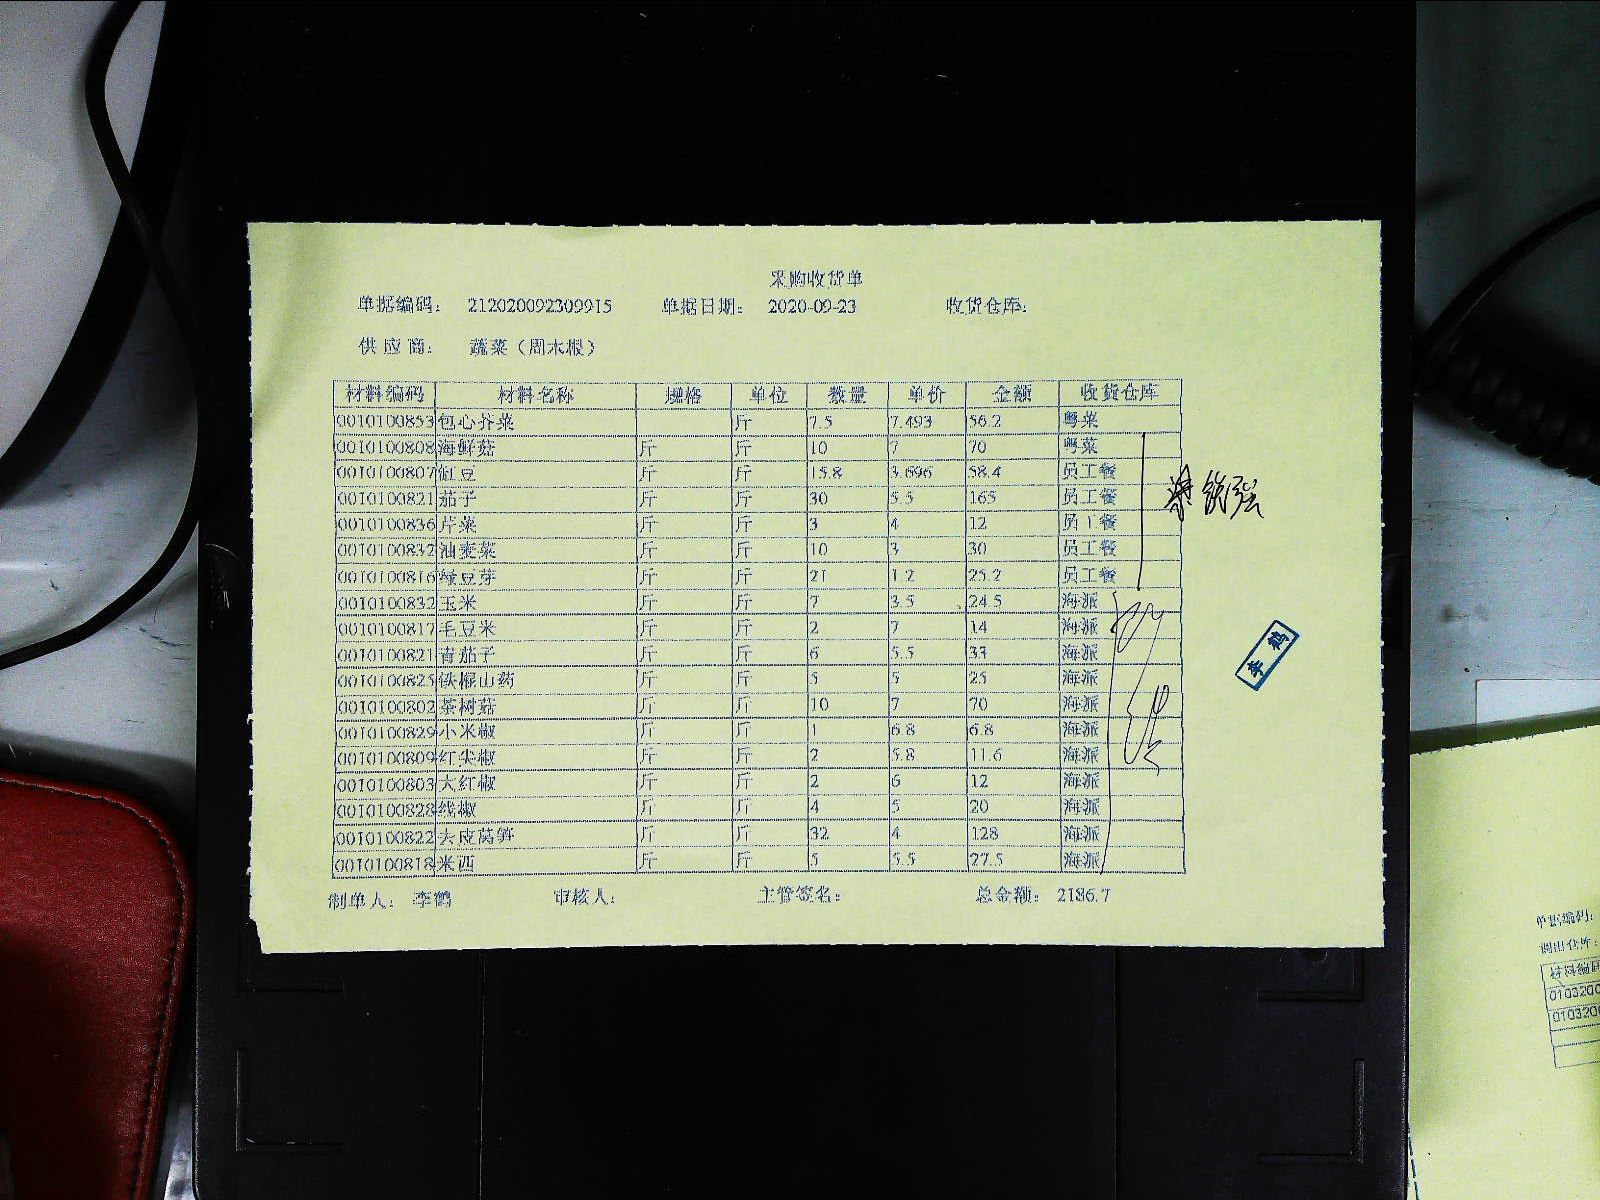 采购收货单
单据编码： 212020092309915 单据日期： 2020-09-23 收货仓库：
供 应 商： 蔬菜（周木根）
材料编码 材料名称 规格 单位 数量 单价 金额 收货仓库
0010100853 包心芥菜 斤 7.5 7.493 56.2 粤菜
0010100808 海鲜菇 斤 斤 10 7 70 粤菜
0010100807 豇豆 斤 斤 15.8 3.696 58.4 员工餐
0010100821 茄子 斤 斤 30 5.5 165 员工餐
0010100836 芹菜 斤 斤 3 4 12 员工餐
0010100832 油麦菜 斤 斤 10 3 30 员工餐
0010100816 绿豆芽 斤 斤 21 1.2 25.2 员工餐
0010100832 玉米 斤 斤 7 3.5 24.5 海派
0010100817 毛豆米 斤 斤 2 7 14 海派
0010100821 青茄子 斤 斤 6 5.5 33 海派
0010100825 铁棍山药 斤 斤 5 5 25 海派
0010100802 茶树菇 斤 斤 10 7 70 海派
0010100829 小米椒 斤 斤 1 6.8 6.8 海派
0010100809 红尖椒 斤 斤 2 5.8 11.6 海派
0010100803 大红椒 斤 斤 2 6 12 海派
0010100828 线椒 斤 斤 4 5 20 海派
0010100822 去皮莴笋 斤 斤 32 4 128 海派
0010100818 米西 斤 斤 5 5.5 27.5 海派
制单人： 李鹤 审核人： 主管签名： 总金额： 2186.7
李鹤
单据编码：
调出仓库：
材料编码